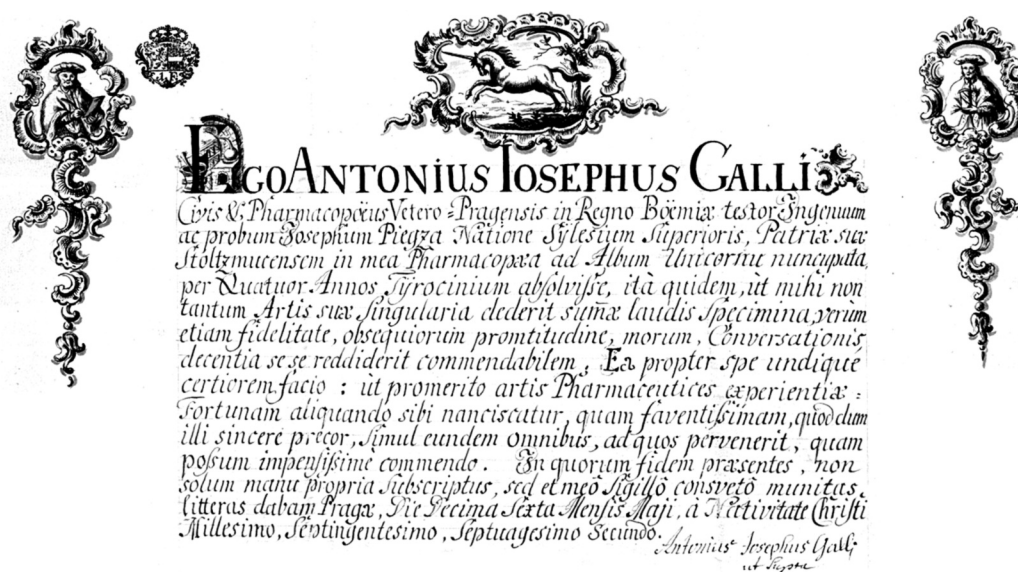 EGO ANTONIUS IOSEPHUS GALLI
Civis & Pharmacopœus Vetero-Pragensis in Regno Böemiæ testor Ingenuum
ac probum Josephum Piegza Natione Sylesium Superioris, Patriæ suæ
Stoltzmucensem in mea Pharmacopæa ad Album Unicornu nuncupata,
per Quatuor Annos Tyrocinium absolvisse, ità quidem, ùt mihi non
tantum Artis suæ Singularia dederit sum̃æ laudis Specimina, verùm
etiam fidelitate, obsequiorum promtitudine, morum, Conversationis
decentia se se reddiderit commendabilem, Ea propter spe undique
certiorem facio : ùt promerito artis Pharmaceutices experientiæ =
Fortunam aliquando sibi nanciscatur, quam faventissimam, quod dum
illi sincerè precor, simul eundem omnibus, ad quos pervenerit, quam
possum impensissimè commendo. In quorum fidem præsentes, non
solum manu propria Subscriptus, sed et meô Sigillô consvetô munitas
litteras dabam Pragæ, Die Decima Sexta Mensis Maji, à Nativitate Christi
Millesimo, Septingentesimo, Septuagesimo Secundo.
Antonius Josephus Galli
ut Supra